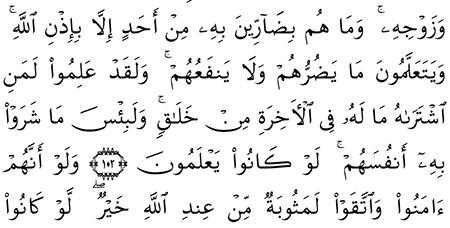 وَزَوْجِهِۦۚ وَمَا هُم بِضَآرِّينَ بِهِۦ مِنْ أَحَدٍ إِلَّا بِإِذْنِ ٱللَّهِۚ
وَيَتَعَلَّمُونَ مَا يَضُرُّهُمْ وَلَا يَنفَعُهُمْۚ وَلَقَدْ عَلِمُوا۟ لَمَنِ
ٱشْتَرَىٰهُ مَا لَهُۥ فِى ٱلْـَٔاخِرَةِ مِنْ خَلَٰقٍۚ وَلَبِئْسَ مَا شَرَوْا۟
بِهِۦٓ أَنفُسَهُمْۚ لَوْ كَانُوا۟ يَعْلَمُونَ ١٠٢ وَلَوْ أَنَّهُمْ
ءَامَنُوا۟ وَٱتَّقَوْا۟ لَمَثُوبَةٌ مِّنْ عِندِ ٱللَّهِ خَيْرٌۖ لَّوْ كَانُوا۟